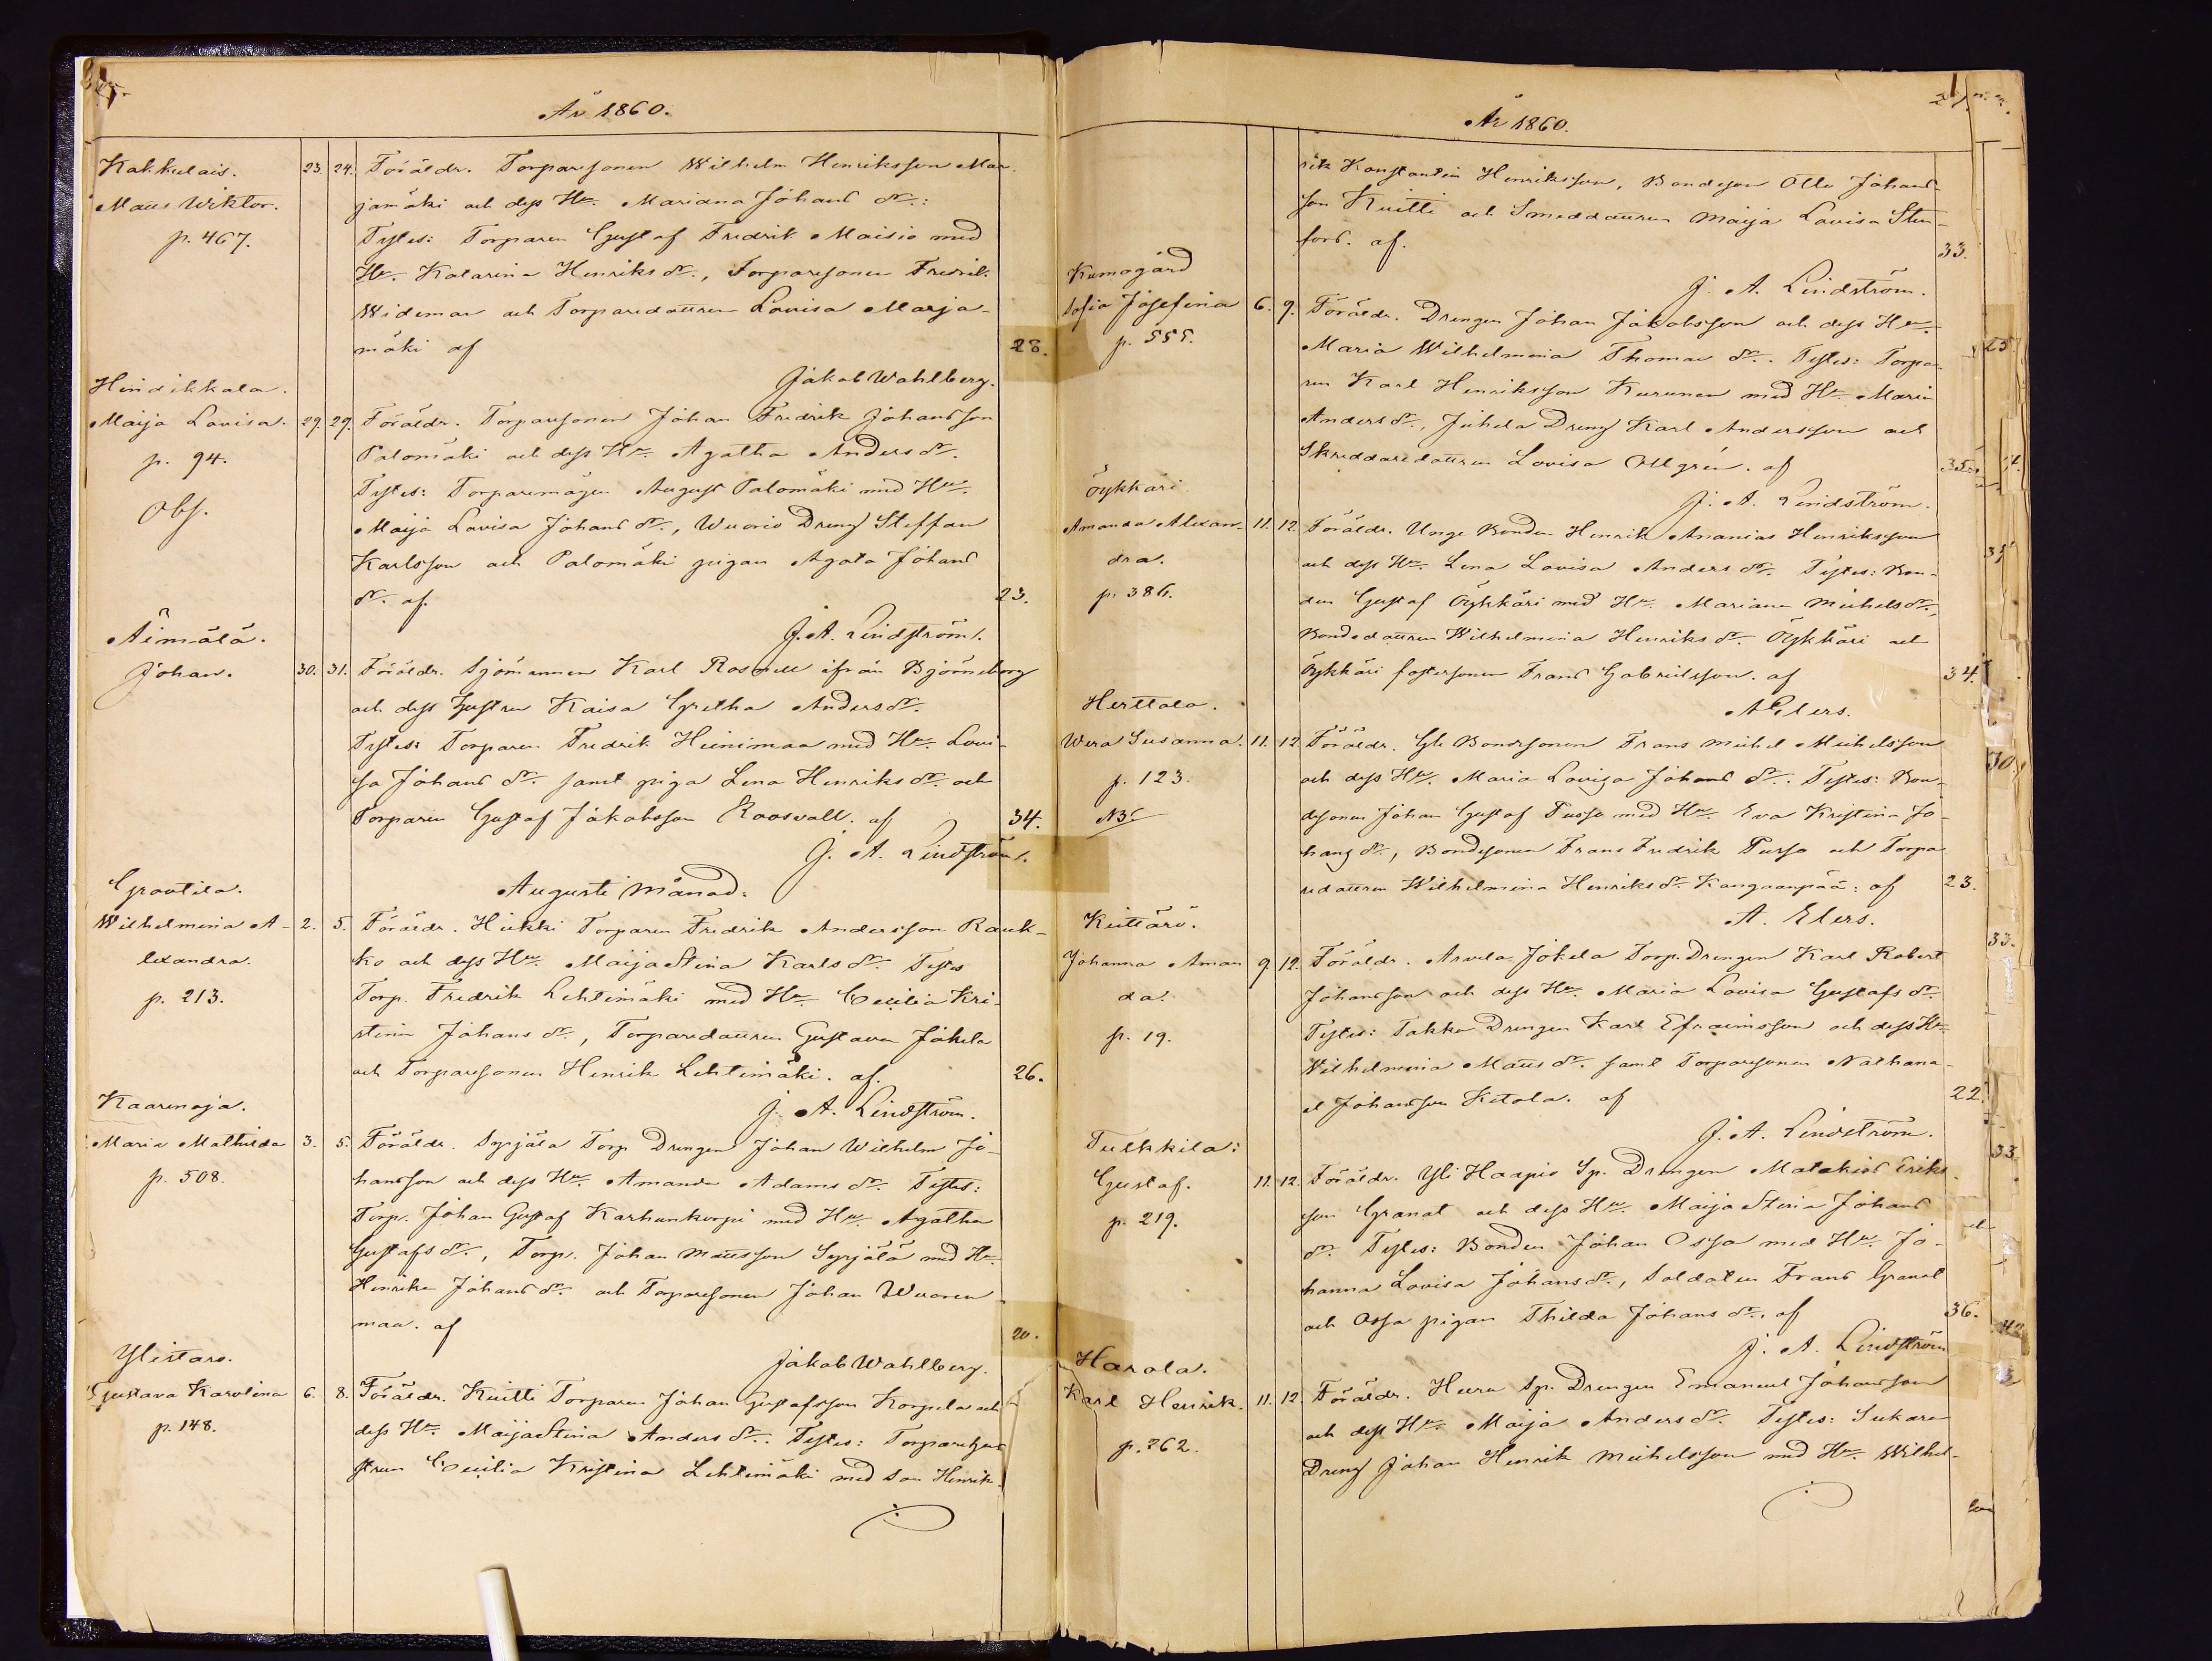 År 1860.
Kakkulais.
Mats Wiktor.
p. 467.
23. 24. Föräldr. Torparesonen Wilhelm Henriksson Mar-
jamäki och dess Hu. Mariana Johans dr.:
Testes: Torparen Gustaf Fredrik Maisio med
Hu. Katarina Henriks dr., Torparesonen Fredrik
Wideman och Torparedottren Lovisa Marja-
mäki af 28.
Jakob Wahlberg.
Hindikkala.
Maija Lovisa.
p. 94.
Obs.
29. 29. Föräldr. Torparesonen Johan Fredrik Johansson
Palomäki och dess Hu. Agatha Anders dr.
Testes: Torparemågen August Palomäki med Hu.
Maija Lovisa Johans dr., Wuorio Dreng Steffan
Karlsson och Palomäki pigan Agata Johans
dr. af. 23.
J. A. Lindström.
Äimälä.
Johan.
30. 31. Föräldr. Sjömannen Karl ifrån Björneborg
och dess Hustru Kaisa Gretha Anders dr.
Testes: Torparen Fredrik Heinimaa med Hu. Lovi-
sa Johans dr. samt piga Lena Henriks dr. och
Torparen Gustaf Jakobsson Roosvall. af 34.
J. A. Lindström.
Augusti Månad:
Wilhelmina A-
lexandra.
p. 213.
2. 5. Föräldr. Heikki Torparen Fredrik Andersson Rauk-
ko och dess Hu. Maija Stina Karls dr. Testes
Torp. Fredrik Lehtimäki med Hu. Cecilia Kri-
stina Johans dr., Torparedottren Gustava Jokela
och Torparesonen Henrik Lehtimäki. af. 26.
J. A. Lindström.
Kaarenoja.
Maria Mathilda
p. 508.
3. 5. Föräldr. Syrjälä Torp Drengen Johan Wilhelm Jo-
hansson och dess Hu. Amanda Adams dr. Testes:
Torp. Johan Gustaf Karhunkorpi med Hu. Agatha
Gustafs dr., Torp. Johan Matsson Syrjälä med Hu.
Henrika Johans dr. och Torparesonen Johan Wuoren
maa. af 20.
Jakob Wahlberg.
Ylistaro.
Gustava Karolina
p. 148.
6. 8. Föräldr. Kuitti Torparen Johan Gustafsson Korpela och
dess Hu. Maija Stina Anders dr. Testes: Torparehu-
strun Cecilia Kristina Lehtimäki med son Henrik.
År 1860.
rik Konstantin Henriksson, Bondeson Otto Johans-
son Kuitti och Smeddottren Maija Lovisa Sten-
fors. af. 33.
J. A. Lindström.
Kumogård
Sofia Josefina
p. 555.
6. 9. Föräldr. Drengen Johan Jakobsson och dess Hu.
Maria Wilhelmina Thomas dr. Testes: Torpa-
ren Karl Henriksson Kurunen med Hu. Maria
Anders dr., Juhela Dreng Karl Andersson och
Skreddaredottren Lovisa Allgrén. af 35.
J. A. Lindström.
Öykkäri
Amanda Alexan-
dra.
p. 386.
11. 12. Föräldr. Unge Bonden Henrik Ananias Henriksson
och dess Hu. Lena Lovisa Anders dr. Testes: Bon-
den Gustaf Öykkäri med Hu. Mariana Michels dr.,
Bondedottren Wilhelmina Henriks dr. Öykkäri och
Öykkäri fostersonen Frans Gabrielsson. af 34.
A Elers.
Herttola.
Wera Susanna.
p. 123.
NB
11. 12. Föräldr. Gle Bondesonen Frans Michel Michelsson
och dess Hu. Maria Lovisa Johans dr. Testes: Bon-
desonen Johan Gustaf Pusso med Hu. Eva Kristina Jo-
hans dr., Bondesonen Frans Fredrik Pusso och Torpa-
redottren Wilhelmina Henriks dr. Kangaanpää: af 23.
A. Elers.
Kiettärö.
Johanna Aman
da.
p. 19.
9. 12. Föräldr. Arvela Jokela Torp. Drengen Karl Robert
Johansson och dess Hu. Maria Lovisa Gustafs dr.
Testes: Takku Drengen Karl Efraimsson och dess Hu.
Wilhelmina Mats dr. samt Torparesonen Nathana-
el Johansson Ketola. af 22.
J. A. Lindström.
Tulkkila:
Gustaf.
p. 219.
11. 12. Föräldr. Yli Haapio Sp. Drengen Malakias Eriks
son Granat och dess Hu. Maija Stina Johans
dr. Testes: Bonden Johan Ossa med Hu. Jo-
hanna Lovisa Johans dr., Soldaten Frans Granat
och Ossa pigan Thilda Johans dr. af 36.
J. A. Lindström
Harola.
Karl Henrik.
p. 762.
11. 12. Föräldr. Sp. Drengen Emanuel Johansson
och dess Hu. Maija Anders dr. Testes: Sukari
Dreng Johan Henrik Michelsson med Hu. Wilhel-